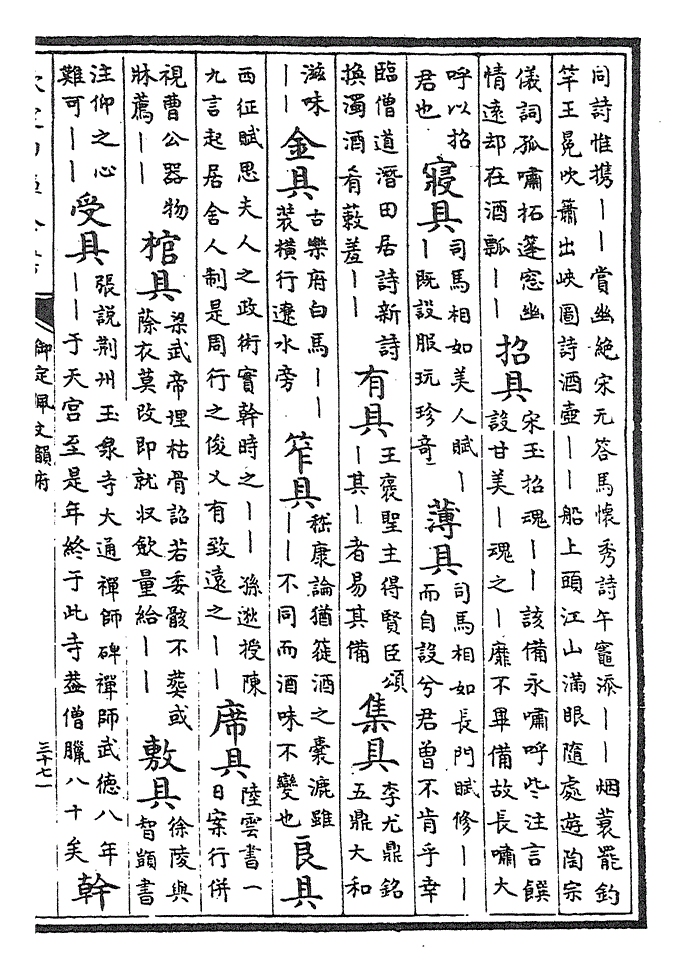 同詩惟攜丨丨賞幽絶宋元答馬懷秀詩午竈添丨丨烟蓑罷釣
竿王冕吹簫出峽圖詩酒壺丨丨船上頭江山滿眼隨處遊陶宗
儀詞孤嘯拓蓬窓幽
情遠却在酒瓢丨丨
招具
宋玉招魂丨丨該備永嘯呼些注言饌
設甘美丨魂之丨靡不畢備故長嘯大
呼以招
君也
寢具
司馬相如美人賦丨
丨既設服玩珍竒
薄具
司馬相如長門賦修丨丨
而自設兮君曾不肯乎幸
臨僧道潛田居詩新詩
換濁酒肴蔌羞丨丨
有具
王褒聖主得賢臣頌
丨其丨者易其備
集具
李尤鼎銘
五鼎大和
滋味
丨丨
金具
古樂府白馬丨丨
裝橫行遼水旁
笮具
嵇康論猶簁酒之囊漉雖
丨丨不同而酒味不變也
良具
西征賦思夫人之政術實幹時之丨丨孫逖授陳
九言起居舍人制是周行之俊乂有致遠之丨丨
席具
陸雲書一
日案行併
視曹公器物
牀薦丨丨
棺具
梁武帝埋枯骨詔若委骸不葬或
蔭衣莫改即就收斂量給丨丨
敷具
徐陵與
智顗書
注仰之心
難可丨丨
受具
張說荆州玉泉寺大通禪師碑禪師武德八年
丨丨于天宫至是年終于此寺葢僧臘八十矣
幹
御定佩文韻府
三十七一